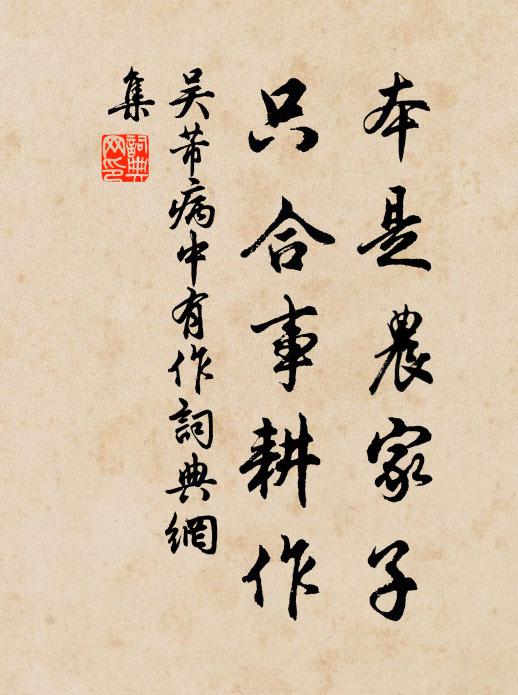 本是農家子
只合事耕作
吴芾病中有作詞典網
集
詞典
网印